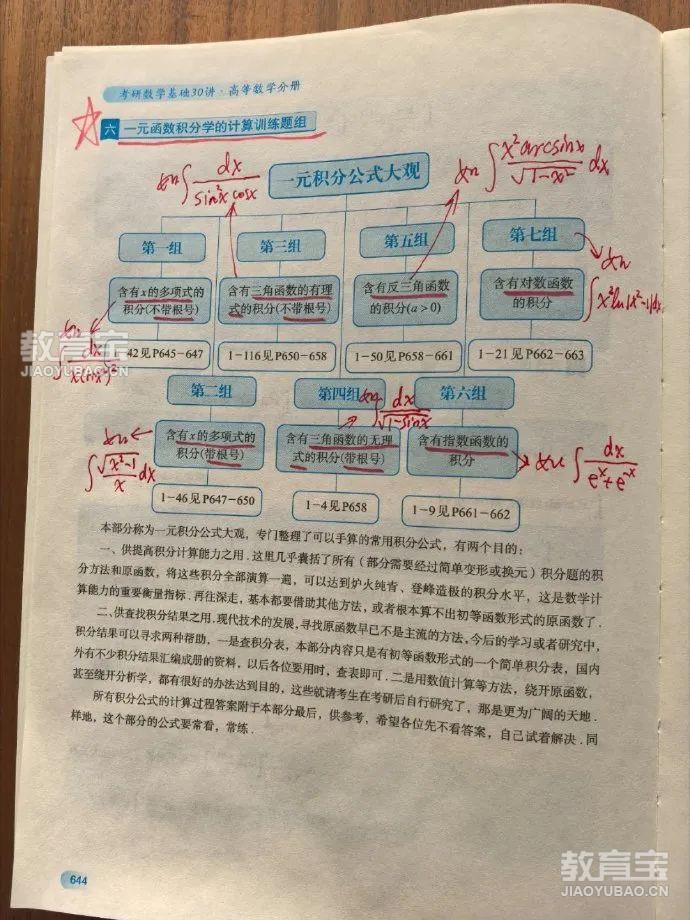 考研数学基础30讲·高等数学分册
六 一元函数积分学的计算训练题组
如∫dx/(sin²x cosx)
一元积分公式大观
如∫(x²arcsinx/√(1-x²))dx
第一组
第三组
第五组
第七组
如
含有x的多项式的积分(不带根号)
含有三角函数的有理式的积分(不带根号)
含有反三角函数的积分(a>0)
含有对数函数的积分
∫x²ln|x²-1|dx
如
教育宝
JIAOYUBAO.CN
42见P645-647
1-116见P650-658
1-50见P658-661
1-21见P662-663
第二组
第四组
第六组
如∫dx/√(1-sinx)
含有x的多项式的积分(带根号)
含有三角函数的无理式的积分(带根号)
含有指数函数的积分
如∫(√(x²-1)/x)dx
如∫dx/(eˣ+e⁻ˣ)
1-46见P647-650
1-4见P658
1-9见P661-662
本部分称为一元积分公式大观，专门整理了可以手算的常用积分公式，有两个目的：
一、供提高积分计算能力之用.这里几乎囊括了所有（部分需要经过简单变形或换元）积分题的积
分方法和原函数，将这些积分全部演算一遍，可以达到炉火纯青、登峰造极的积分水平，这是数学计
算能力的重要衡量指标.再往深走，基本都要借助其他方法，或者根本算不出初等函数形式的原函数了.
二、供查找积分结果之用.现代技术的发展，寻找原函数早已不是主流的方法，今后的学习或者研究中，
积分结果可以寻求两种帮助，一是查积分表，本部分内容只是有初等函数形式的一个简单积分表，国内
外有不少积分结果汇编成册的资料，以后各位要用时，查表即可.二是用数值计算等方法，绕开原函数，
甚至绕开分析学，都有很好的办法达到目的，这些就请考生在考研后自行研究了，那是更为广阔的天地.
所有积分公式的计算过程答案附于本部分最后，供参考，希望各位先不看答案，自己试着解决.同
样地，这个部分的公式要常看，常练.
644
教育宝
JIAOYUBAO.CN